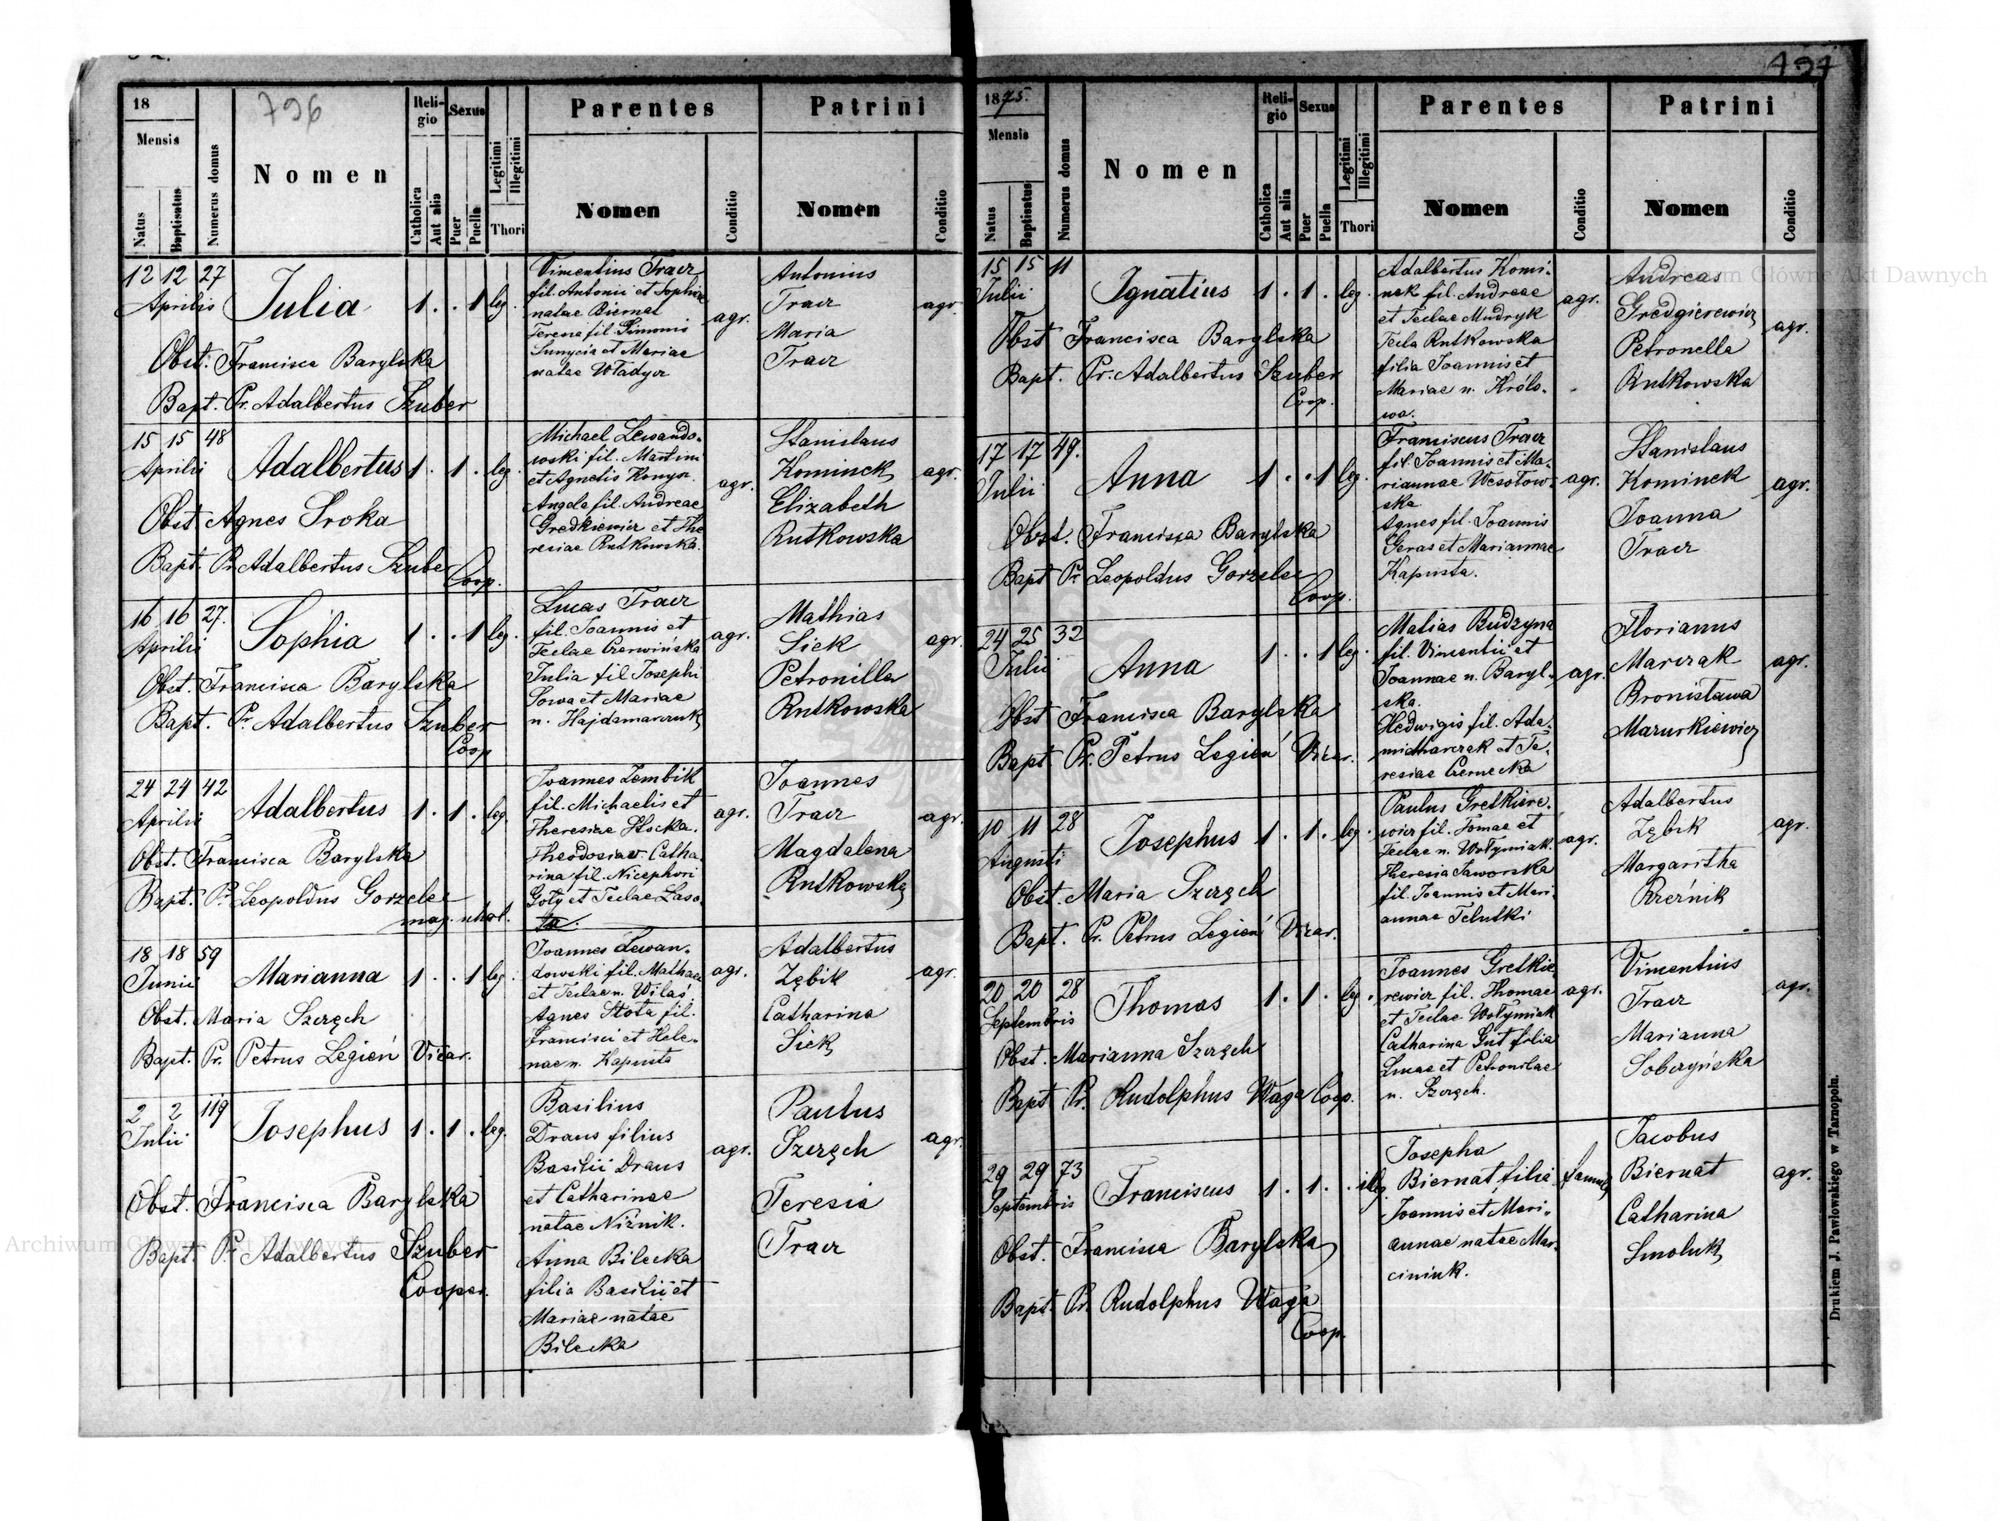 796
18
Mensis
Natus
Baptisatus
Numerus domus
Nomen
Religio
Catholica
Aut alia
Sexus
Puer
Puella
Legitimi
Illegitimi
Thori
Parentes
Nomen
Conditio
Patrini
Nomen
Conditio
12 12 27
Aprilis Julia 1 . . 1 leg.
Obst. Francisca Barylska
Bapt. Pr. Adalbertus Szuber
Vincentius Tracz
fil. Antonii et Sophia
natae Biernat
Terena fil. Simonis
et Mariae
natae Władyga
agr.
Antonius
Tracz
Maria
Tracz
agr.
15 15 48
Aprilis Adalbertus 1 . 1 . leg.
Obst Agnes Sroka
Bapt. Pr. Adalbertus Szuber
Coop.
Michael Lewando-
wski fil. Martini
et Agnetis
Angela fil. Andreae
Gredkiewicz et The
resiae Rutkowska.
agr.
Stanislaus
Kominek
Elizabeth
Rutkowska
agr.
16 16 27.
Aprilis Sophia 1 . . 1 leg.
Obst. Francisca Barylska
Bapt. Pr. Adalbertus Szuber
Coop
Lucas Tracz
fil. Joannis et
Teclae Czerwińska
Julia fil Josephi
Sowa et Mariae
n. Hajdamarczuk
agr.
Mathias
Siek
Petronilla
Rutkowska
agr
24 24 42
Aprilis Adalbertus 1 . 1 . leg.
Obst. Francisca Barylska
Bapt. Pr. Leopoldus Gorzelec
Joannes Zembik
fil. Michaelis et
Theresiae
Theodosia v. Catha
rina fil. Nicephori
Goły et Teclae Laso-
ta.
agr.
Joannes
Tracz
Magdalena
Rutkowska
agr.
18 18 59
Junii Marianna 1 . . 1 leg.
Obst. Maria Szeręch
Bapt. Pr. Petrus Legień Vicar.
Joannes Lewan-
dowski fil. Mathae
et Teclae n. Wilaś
Agnes Słota fil.
Francisci et Hele-
nae n. Kapusta
agr.
Adalbertus
Zębik
Catharina
Siek
agr.
2 2 119
Julii Josephus 1 . 1 . leg.
Obst. Francisca Barylska
Bapt. Pr. Adalbertus Szuber
Cooper.
Basilius
Draus filius
Basilii Draus
et Catharinae
natae Niżnik.
Anna Bilecka
filia Basilii et
Mariae natae
Bilecka
agr.
Paulus
Szeręch
Teresia
Tracz
agr.
1875.
Mensis
Natus
Baptisatus
Numerus domus
Nomen
Religio
Catholica
Aut alia
Sexus
Puer
Puella
Legitimi
Illegitimi
Thori
Parentes
Nomen
Conditio
Patrini
Nomen
Conditio
15 15 11
Julii Ignatius 1 . 1 . leg.
Obst Francisca Barylska
Bapt. Pr. Adalbertus Szuber
Coop.
Adalbertus Komi-
nek fil. Andreae
et Teclae Mudryk
Tecla Rutkowska
filia Joannis et
Mariae n. Królo-
wa.
agr.
Andreas
Gredgierewicz
Petronella
Rutkowska
agr.
17 17 49.
Julii Anna 1 . . 1 leg.
Obst. Francisca Barylska
Bapt Pr Leopoldus Gorzelec
Coop.
Franciscus Tracz
fil. Joannis et Ma-
riannae Wesołow-
ska
Agnes fil. Joannis
Geras et Mariannae
Kapusta.
agr.
Stanislaus
Kominek
Joanna
Tracz
agr.
24 25 32
Julii Anna 1 . . 1 leg.
Obst Francisca Barylska
Bapt Pr. Petrus Legień Vicar.
Matias Budzyna
fil. Vincentii et
Joannae n. Baryl-
ska.
Hedwigis fil. Ada-
mi et Te-
resiae Czernecka
agr.
Florianus
Marczak
Bronisława
Mazurkiewicz
agr.
10 11 28
Augusti Josephus 1 . 1 . leg.
Obst. Maria Szeręch
Bapt. Pr. Petrus Legień Vicar.
Paulus Gretkiere-
wicz fil. Tomae et
Teclae n. Wołyniak.
Theresia Jaworska
fil. Joannis et Mari-
annae Telutki
agr.
Adalbertus
Zębik
Margaritha
Rzeźnik
agr.
20 20 28
Septembris Thomas 1 . 1 . leg.
Obst. Marianna Szeręch
Bapt Pr. Rudolphus Waga Coop.
Joannes Gretkie
rewicz fil. Thomae
et Teclae Wołyniak
Catharina Gut filia
Lucae et Petronelae
n. Szeręch.
agr.
Vincentius
Tracz
Marianna
Soberzyńska
agr.
29 29 73
Septembris Franciscus 1 . 1 . . illeg.
Obst. Francisca Barylska
Bapt. Pr. Rudolphus Waga
Coop.
Josepha
Biernat filia
Joannis et Mari-
annae natae Mar-
ciniuk.
famula
Jacobus
Biernat
Catharina
Smoluk
agr.
Drukiem J. Pawlowskiego w Tarnopolu.
Archiwum Główne Akt Dawnych
Archiwum Główne Akt Dawnych